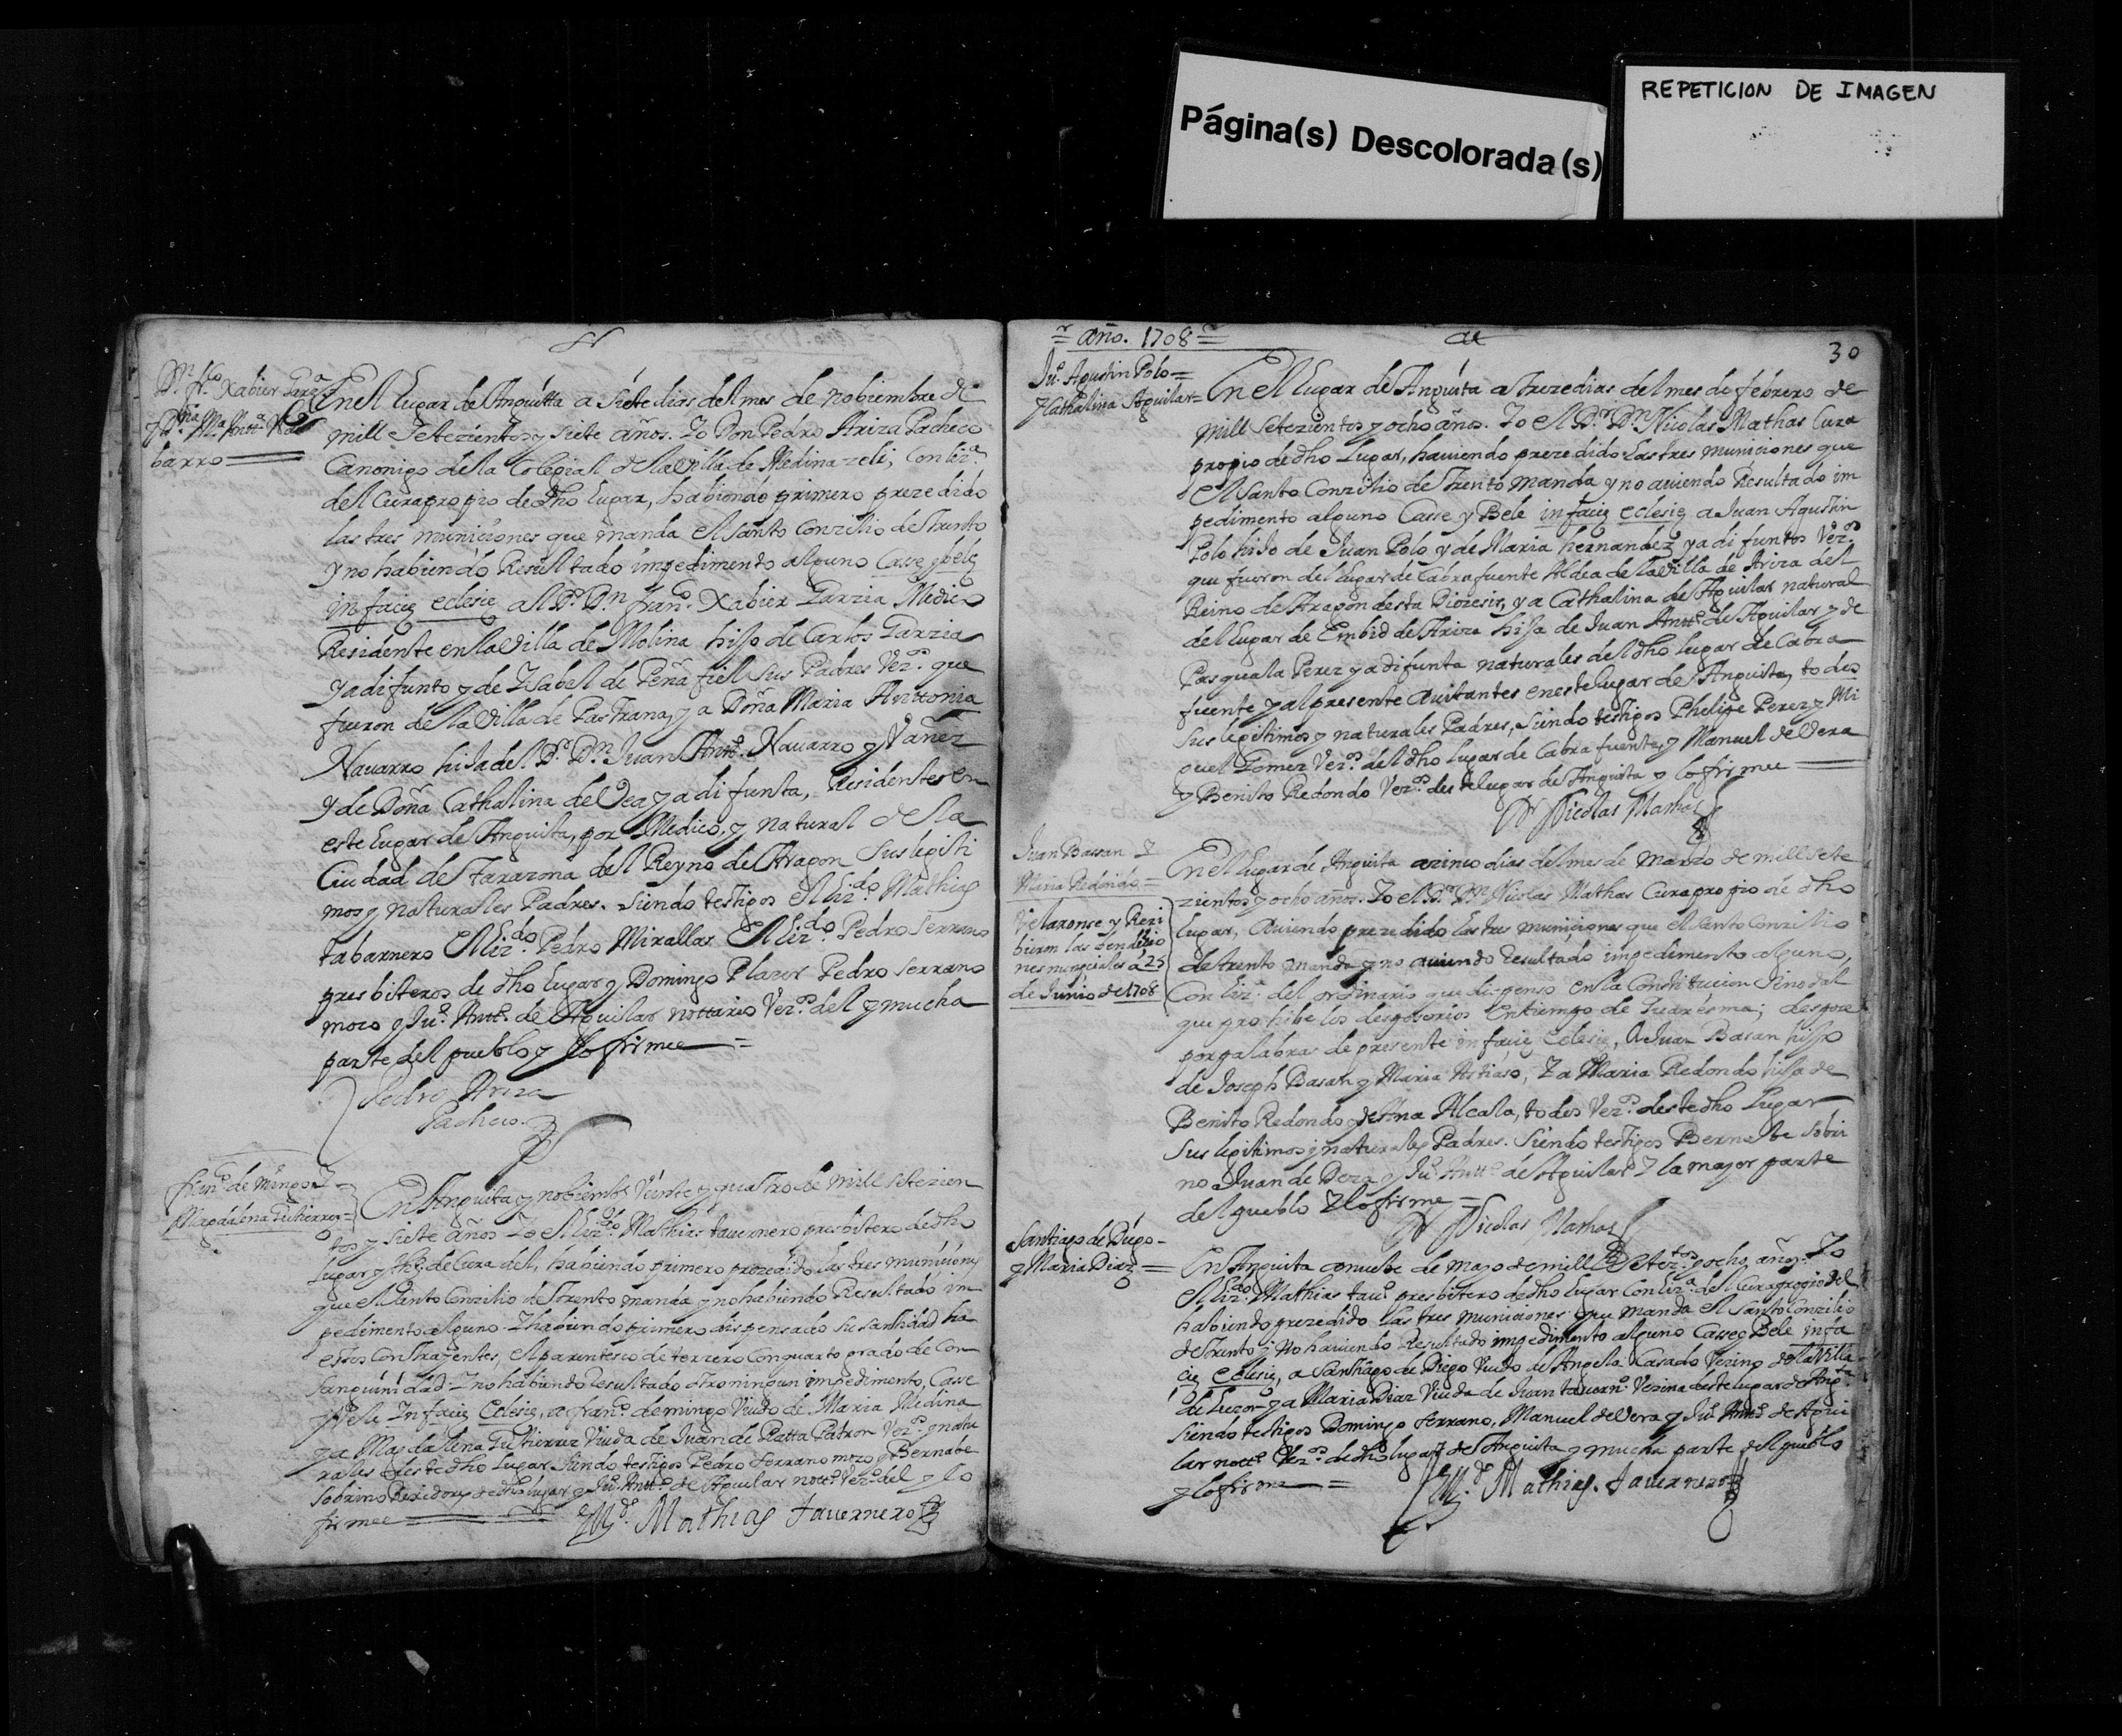 Página(s) Descolorada(s)
REPETICION DE IMAGEN
Dn. franco Xabier Garza
y Dña Ma Antta Na
barro
En el Lugar de Anguitta a siete dias del mes de nobiembre de
mill setezientos y siete años. Yo Don Pedro Ariza Pacheco
Canonigo de la Colegial de la Villa de Medina-zeli, con liza
del Cura propio de dho Lugar, habiendo primero prezedido
las tres muniziones que manda el santo Conzilio de Trento
y no habiendo Resultado impedimento alguno Casse y bele
in facie eclesie al Dr. Dn franco Xabier Garzia Medico
Residente en la Villa de Molina hijo de Carlos Garzia
ya difunto y de Ysabel de Peña fiel sus Padres Vezos que
fueron de la Villa de Pastrana, y a Doña Maria Anttonia
Nauarro hija del Dr. Dn. Juan Antto. Nauarro y Yañez
y de Doña Cathalina de Vea ya difunta, Residentes en
este Lugar de Anguita, por Medico, y natural de la
Ciudad de Tarazona del Reyno de Aragon sus legiti
mos y naturales Padres. siendo testigos el lizdo. Mathias
tabarnero el lizdo. Pedro Mirallas el lizdo. Pedro Serrano
presbiteros de dho Lugar y Domingo Plazer Pedro serrano
mozo y Juo. Antto. de Aguilar nottario Vezos del y mucha
parte del pueblo y lo firmee =
Pedro Ariza
Pacheco
franco de Mingo Y
Magdalena Gutierrez
En Anguita y nobiembe Veinte y quatro de mill setezien
tos y siete años Yo el lizdo. Mathias tauernero presbitero de dho
Lugar y The. de Cura del, habiendo primero prezedido las tres muniziones
que el santo Conzilio de Trento manda y no habiendo Resultado im
pedimento alguno. Y habiendo primero dispensado su santidad ha
estos Contrayentes, el parentesco de terzero Con quarto grado de Con
sanguinidad. Y no habiendo Resultado otro ningun impedimento, Casse
y Vele Yn facie Eclesie, a franco. de mingo Viudo de Maria Medina
y a Magdalena Gutierrez Viuda de Juan de Patron Vezos y natu
rales deste dho Lugar siendo testigos Pedro serrano mozo y Bernabe
sobrino Rexidores de dho lugar y Juo. Antto. de Aguilar notto. Vezos del y lo
firmee
Mo. Mathias Tauernero
año. 1708
30
Juo. Agustin Polo =
y Cathalina Aguilar =
En el Lugar de Anguita a treze dias del mes de febrero de
mill setezientos y ocho años. Yo el Dr. Dn. Nicolas Mathas Cura
propio de dho Lugar, hauiendo prezedido las tres muniziones que
el santo Conzilio de Trento manda y no auiendo Resultado im
pedimento alguno Casse y Bele in facie eclesie a Juan Agustin
Polo hijo de Juan Polo y de Maria hernandez ya difuntos Vezos
que fueron del Lugar de Cabrafuente Aldea de la Villa de Ariza del
Reino de Aragon desta Diozesis, y a Cathalina de Aguilar natural
del Lugar de Embid de Ariza hija de Juan Antto. de Aguilar y de
Pasquala Perez ya difunta naturales del dho lugar de Cabra
fuente y al presente auitantes en este lugar de Anguita, todos
sus legitimos y naturales Padres, siendo testigos Phelipe Perez y Mi
guel Gomez Vezos. del dho lugar de Cabra fuente, y Manuel de Vera
y Benito Redondo Vezos. deste lugar de Anguita y lo firmee
Dr Nicolas Mathas
Juan Bassan Y
Maria Redondo =
Velaronse y Rezi
bieron las bendizio
nes nunciales a 25
de Junio de 1708
En el Lugar de Anguita a zinco dias del mes de marzo de mill sete
zientos y ocho años. Yo el Dr. Dn Nicolas Mathas Cura propio de dho
lugar, Auiendo prezedido las tres muniziones que el santo Conzilio
de trento manda y no auiendo Resultado impedimento alguno,
Con liza. del ordinario que dispenso en la Constitucion sinodal
que prohibe los desposorios en tiempo de Quaresma; despose
por palabras de presente in facie Eclesie, a Juan Basan hijo
de Joseph Basan y Maria, Y a Maria Redondo hija de
Benito Redondo y de Ana Alcala, todos Vezos. deste dho Lugar
sus legitimos y naturales Padres. siendo testigos Bernabe sobri
no Juan de Vera y Juo. Antto. de Aguilar Y la mayor parte
del pueblo Y lo firme =
Dr Nicolas Mathas
Santiago de Diego -
y Maria Diaz =
En Anguita a nuebe de mayo de mill Setezos. y ocho años. Yo
el lizdo. Mathias tauo. presbitero de dho lugar Con liza. del Cura propio del
habiendo prezedido las tres muniziones que manda el santo Conzilio
de Trento y no hauiendo Resultado impedimento alguno Casse y Bele infa
cie Eclesie, a Santiago de Diego Viudo de Angela Casado Vezino de la Villa
de Luzon y a Maria Diaz Viuda de Juan tauerno. Vezina deste lugar de Anga.
siendo testigos Domingo serrano, Manuel de Vera y Juo. Antto. de Agui
lar notto. Vezos. de dho lugar de Anguita y mucha parte del pueblo
y lo firme =
Mo. Mathias. Tauernero